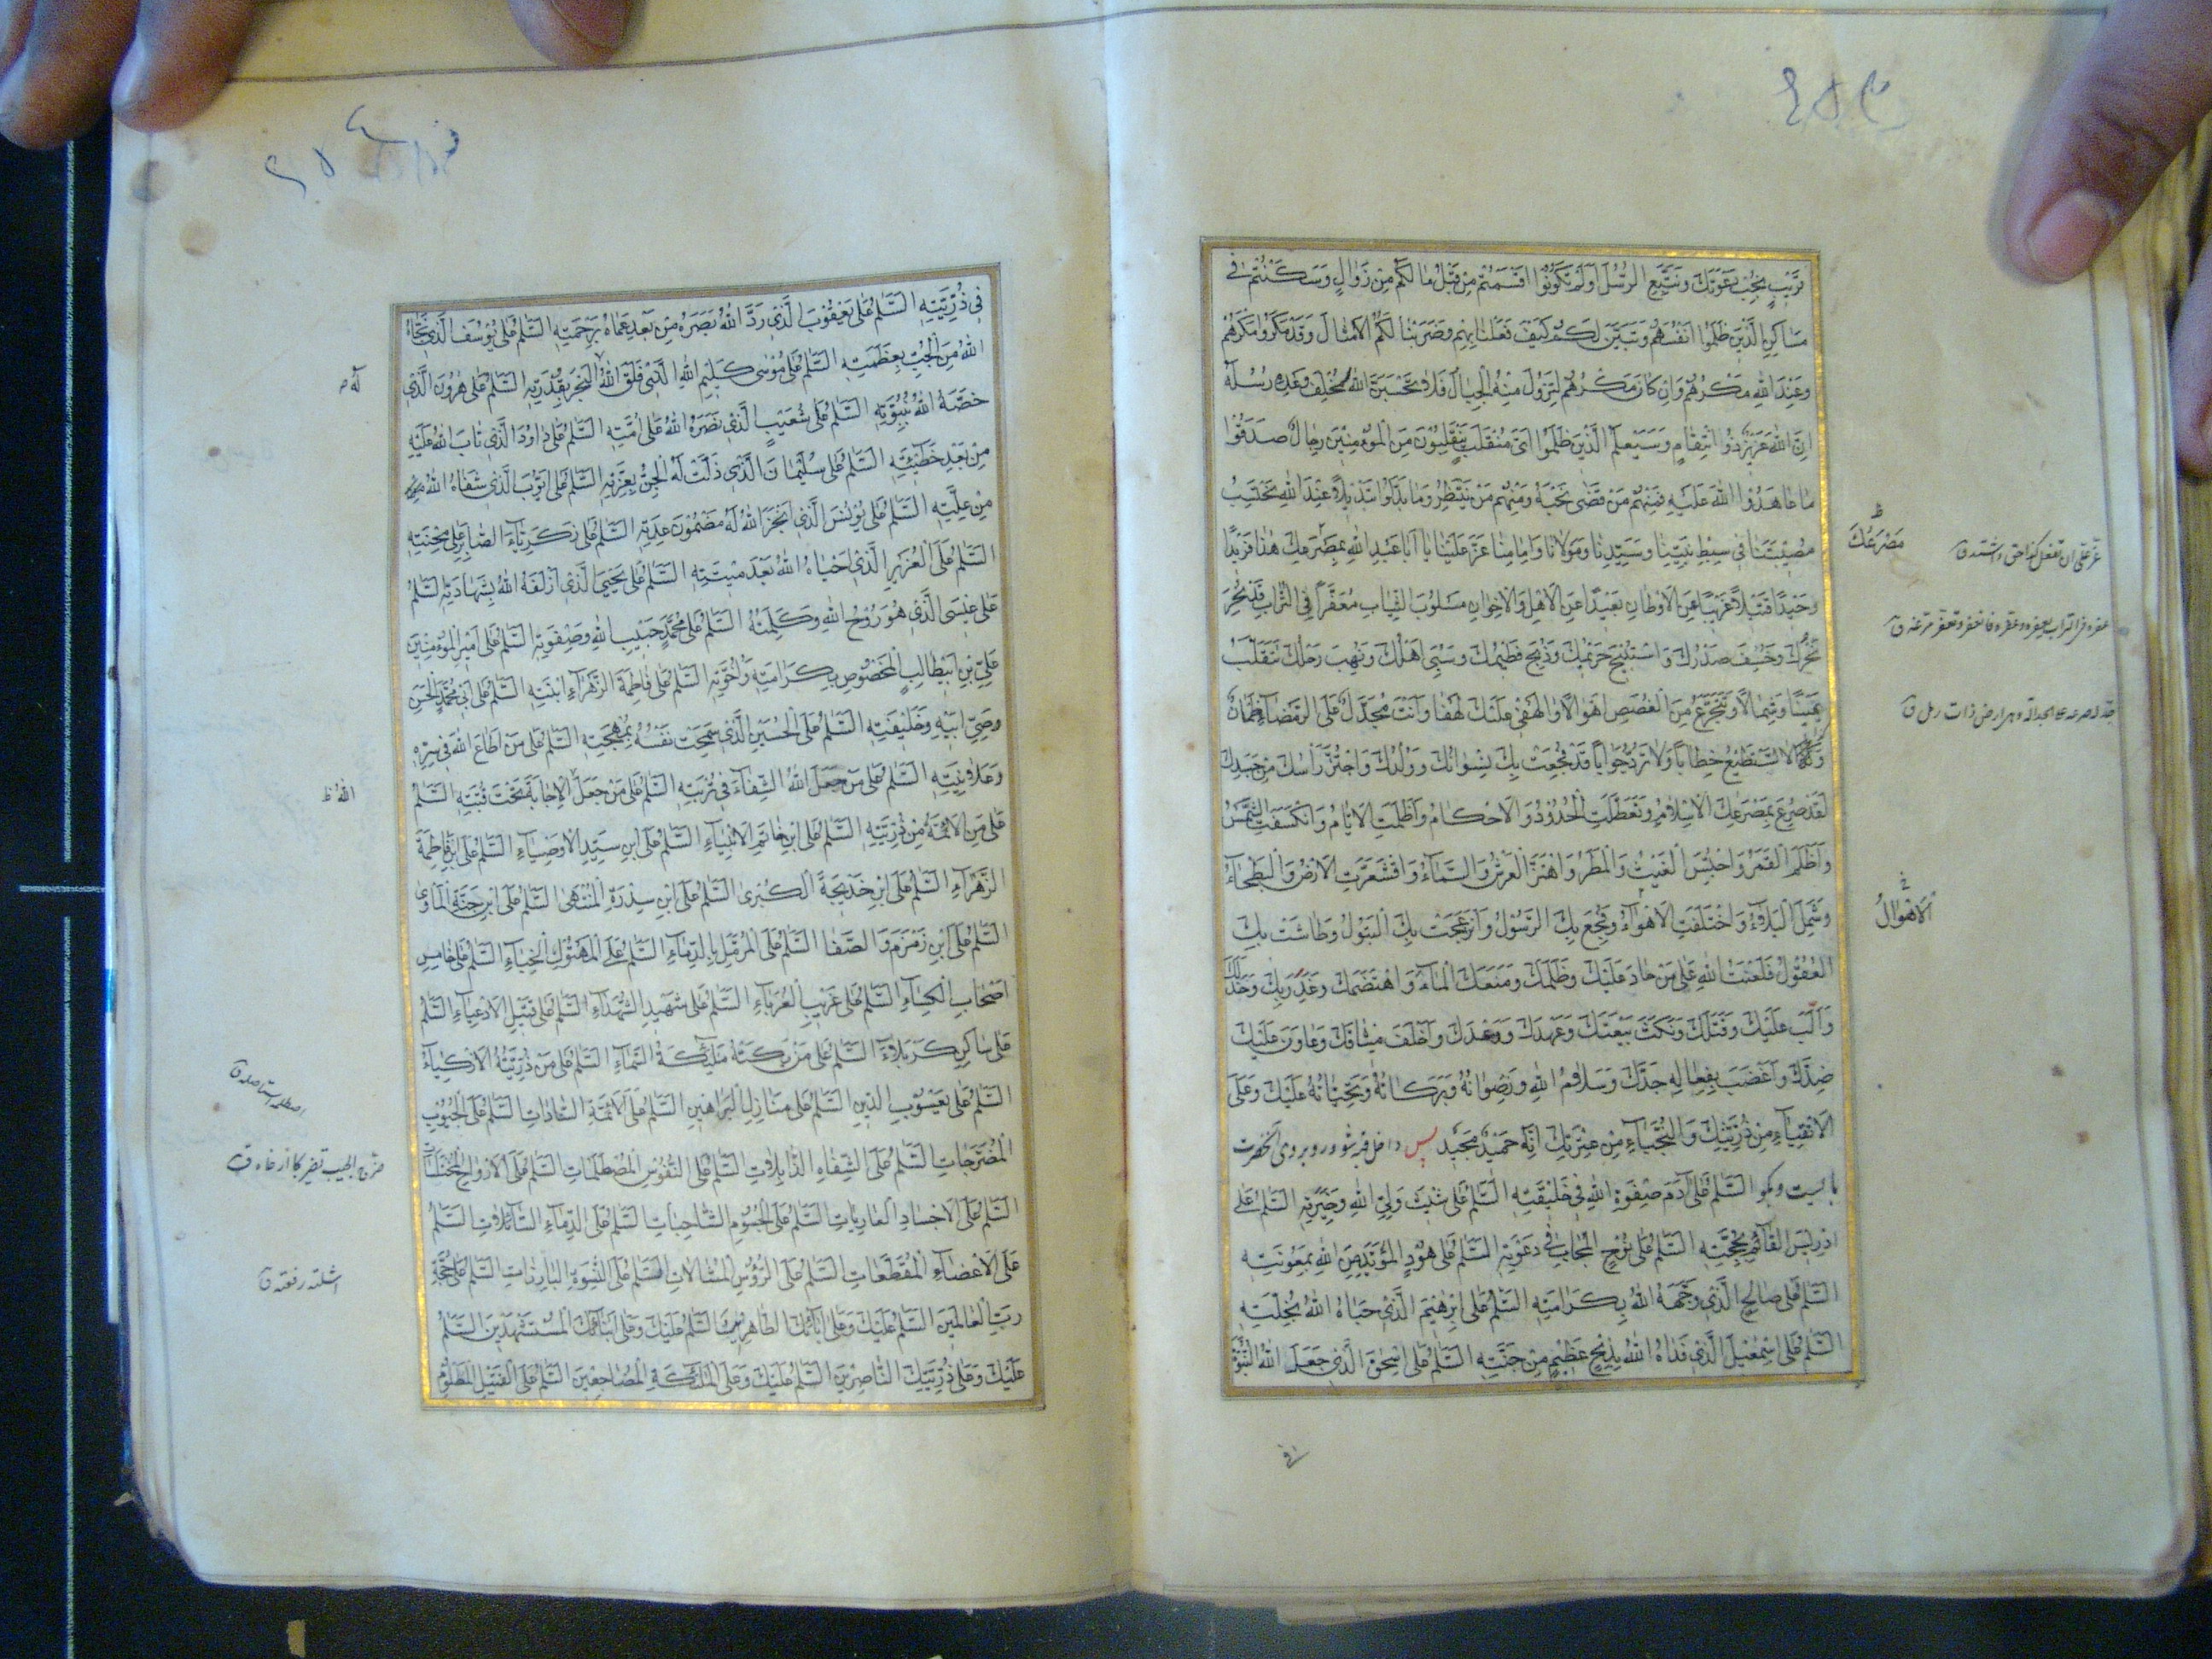 قَرِيبٍ نُجِبْ دَعْوَتَكَ وَنَتَّبِعِ الرُّسُلَ اَوَلَمْ تَكُونُوا اَقْسَمْتُمْ مِنْ قَبْلُ مَا لَكُمْ مِنْ زَوَالٍ وَسَكَنْتُمْ فِي
مَسَاكِنِ الَّذِينَ ظَلَمُوا اَنْفُسَهُمْ وَتَبَيَّنَ لَكُمْ كَيْفَ فَعَلْنَا بِهِمْ وَضَرَبْنَا لَكُمُ الْاَمْثَالَ وَقَدْ مَكَرُوا مَكْرَهُمْ
وَعِنْدَ اللهِ مَكْرُهُمْ وَاِنْ كَانَ مَكْرُهُمْ لِتَزُولَ مِنْهُ الْجِبَالُ فَلَا تَحْسَبَنَّ اللهَ مُخْلِفَ وَعْدِهِ رُسُلَهُ
اِنَّ اللهَ عَزِيزٌ ذُو انْتِقَامٍ وَسَيَعْلَمُ الَّذِينَ ظَلَمُوا اَيَّ مُنْقَلَبٍ يَنْقَلِبُونَ مِنَ الْمُؤْمِنِينَ رِجَالٌ صَدَقُوا
مَا عَاهَدُوا اللهَ عَلَيْهِ فَمِنْهُمْ مَنْ قَضَى نَحْبَهُ وَمِنْهُمْ مَنْ يَنْتَظِرُ وَمَا بَدَّلُوا تَبْدِيلًا عِنْدَ اللهِ نَحْتَسِبُ
مُصِيبَتَنَا فِي سِبْطِ نَبِيِّنَا وَسَيِّدِنَا وَمَوْلَانَا وَاِمَامِنَا عَزَّ عَلَيْنَا يَا اَبَا عَبْدِ اللهِ بِمَصْرَعِكَ هٰذَا فَرِيدًا
وَحِيدًا قَتِيلًا غَرِيبًا عَنِ الْاَوْطَانِ بَعِيدًا عَنِ الْاَهْلِ وَالْاِخْوَانِ مَسْلُوبَ الثِّيَابِ مُعَفَّرًا فِي التُّرَابِ قَدْ نُحِرَ
نَحْرُكَ وَخُسِفَ صَدْرُكَ وَاسْتُبِيحَ حَرِيمُكَ وَذُبِحَ فَطِيمُكَ وَسُبِيَ اَهْلُكَ وَنُهِبَ رَحْلُكَ تَنْقَلِبُ
يَمِينًا وَشِمَالًا وَتَتَجَرَّعُ مِنَ الْغُصَصِ اَهْوَالًا وَالَهْفِي عَلَيْكَ لَهْفَا وَاَنْتَ مُجَدَّلٌ عَلَى الرَّمْضَاءِ ظَمْآنُ
لَا تَسْتَطِيعُ خِطَابًا وَلَا تَرُدُّ جَوَابًا قَدْ فُجِعَتْ بِكَ نِسْوَانُكَ وَوُلْدُكَ وَاحْتُزَّ رَأْسُكَ مِنْ جَسَدِكَ
لَقَدْ صُرِعَ بِمَصْرَعِكَ الْاِسْلَامُ وَتَعَطَّلَتِ الْحُدُودُ وَالْاَحْكَامُ وَاَظْلَمَتِ الْاَيَّامُ وَانْكَسَفَتِ الشَّمْسُ
وَاَظْلَمَ الْقَمَرُ وَاحْتُبِسَ الْغَيْثُ وَالْمَطَرُ وَاهْتَزَّ الْعَرْشُ وَالسَّمَاءُ وَاقْشَعَرَّتِ الْاَرْضُ وَالْبَطْحَاءُ
وَشَمِلَ الْبَلَاءُ وَاخْتَلَفَتِ الْاَهْوَاءُ وَفُجِعَ بِكَ الرَّسُولُ وَاُزْعِجَتْ بِكَ الْبَتُولُ وَطَاشَتْ بِكَ
الْعُقُولُ فَلَعْنَةُ اللهِ عَلَى مَنْ جَارَ عَلَيْكَ وَظَلَمَكَ وَمَنَعَكَ الْمَاءَ وَاهْتَضَمَكَ وَغَدَرَ بِكَ وَخَذَلَكَ
وَاَلَّبَ عَلَيْكَ وَقَتَلَكَ وَنَكَثَ بَيْعَتَكَ وَعَهْدَكَ وَوَعْدَكَ وَاَخْلَفَ مِيثَاقَكَ وَعَاوَنَ عَلَيْكَ
ضِدَّكَ وَاَغْضَبَ بِفِعَالِهِ جَدَّكَ وَسَلَامُ اللهِ وَرِضْوَانُهُ وَبَرَكَاتُهُ وَتَحِيَّاتُهُ عَلَيْكَ وَعَلَى
الْاَتْقِيَاءِ مِنْ ذُرِّيَّتِكَ وَالنُّجَبَاءِ مِنْ عِتْرَتِكَ اِنَّهُ حَمِيدٌ مَجِيدٌ پس داخل قبه شو ورو بروى آنحضرت
بايست وبگو السَّلٰمُ عَلَى آدَمَ صِفْوَةِ اللهِ فِي خَلِيقَتِهِ السَّلٰمُ عَلَى شَيْثَ وَلِيِّ اللهِ وَخِيَرَتِهِ السَّلٰمُ عَلَى
اِدْرِيسَ الْقَائِمِ بِحُجَّتِهِ السَّلٰمُ عَلَى نُوحٍ الْمُجَابِ فِي دَعْوَتِهِ السَّلٰمُ عَلَى هُودٍ الْمُؤَيَّدِ مِنَ اللهِ بِمَعُونَتِهِ
السَّلٰمُ عَلَى صَالِحٍ الَّذِي وَجَّهَهُ اللهُ بِكَرَامَتِهِ السَّلٰمُ عَلَى اِبْرٰهِيمَ الَّذِي حَبَاهُ اللهُ بِخُلَّتِهِ
السَّلٰمُ عَلَى اِسْمٰعِيلَ الَّذِي فَدَاهُ اللهُ بِذِبْحٍ عَظِيمٍ مِنْ جَنَّتِهِ السَّلٰمُ عَلَى اِسْحٰقَ الَّذِي جَعَلَ اللهُ النُّبُوَّةَ
مَصْرَعُكَ
الْاَهْوَالُ
فِي ذُرِّيَّتِهِ السَّلٰمُ عَلَى يَعْقُوبَ الَّذِي رَدَّ اللهُ بَصَرَهُ مِنْ بَعْدِ عَمَاهُ بِرَحْمَتِهِ السَّلٰمُ عَلَى يُوسُفَ الَّذِي نَجَّاهُ
اللهُ مِنَ الْجُبِّ بِعَظَمَتِهِ السَّلٰمُ عَلَى مُوسٰى كَلِيمِ اللهِ الَّذِي فَلَقَ اللهُ الْبَحْرَ بِقُدْرَتِهِ السَّلٰمُ عَلَى هٰرُونَ الَّذِي
خَصَّهُ اللهُ بِنُبُوَّتِهِ السَّلٰمُ عَلَى شُعَيْبٍ الَّذِي نَصَرَهُ اللهُ عَلَى اُمَّتِهِ السَّلٰمُ عَلَى دَاوُدَ الَّذِي تَابَ اللهُ عَلَيْهِ
مِنْ بَعْدِ خَطِيئَتِهِ السَّلٰمُ عَلَى سُلَيْمَانَ الَّذِي ذَلَّتْ لَهُ الْجِنُّ بِعِزَّتِهِ السَّلٰمُ عَلَى اَيُّوبَ الَّذِي شَفَاهُ اللهُ
مِنْ عِلَّتِهِ السَّلٰمُ عَلَى يُونُسَ الَّذِي اَنْجَزَ اللهُ لَهُ مَضْمُونَ عِدَتِهِ السَّلٰمُ عَلَى زَكَرِيَّاءَ الصَّابِرِ عَلَى مِحْنَتِهِ
السَّلٰمُ عَلَى الْعُزَيْرِ الَّذِي اَحْيَاهُ اللهُ بَعْدَ مِيتَتِهِ السَّلٰمُ عَلَى يَحْيَى الَّذِي اَزْلَفَهُ اللهُ بِشَهَادَتِهِ السَّلٰمُ
عَلَى عِيسَى الَّذِي هُوَ رُوحُ اللهِ وَكَلِمَتُهُ السَّلٰمُ عَلَى مُحَمَّدٍ حَبِيبِ اللهِ وَصِفْوَتِهِ السَّلٰمُ عَلَى اَمِيرِ الْمُؤْمِنِينَ
عَلِيِّ بْنِ اَبِيطَالِبٍ الْمَخْصُوصِ بِكَرَامَتِهِ وَاُخُوَّتِهِ السَّلٰمُ عَلَى فَاطِمَةَ الزَّهْرَاءِ ابْنَتِهِ السَّلٰمُ عَلَى اَبِي مُحَمَّدٍ الْحَسَنِ
وَصِيِّ اَبِيهِ وَخَلِيفَتِهِ السَّلٰمُ عَلَى الْحُسَيْنِ الَّذِي سَمَحَتْ نَفْسُهُ بِمُهْجَتِهِ السَّلٰمُ عَلَى مَنْ اَطَاعَ اللهَ فِي سِرِّهِ
وَعَلَانِيَتِهِ السَّلٰمُ عَلَى مَنْ جَعَلَ اللهُ الشِّفَاءَ فِي تُرْبَتِهِ السَّلٰمُ عَلَى مَنْ جَعَلَ الْاِجَابَةَ تَحْتَ قُبَّتِهِ السَّلٰمُ
عَلَى مَنِ الْاَئِمَّةُ مِنْ ذُرِّيَّتِهِ السَّلٰمُ عَلَى ابْنِ خَاتَمِ الْاَنْبِيَاءِ السَّلٰمُ عَلَى ابْنِ سَيِّدِ الْاَوْصِيَاءِ السَّلٰمُ عَلَى ابْنِ فَاطِمَةَ
الزَّهْرَاءِ السَّلٰمُ عَلَى ابْنِ خَدِيجَةَ الْكُبْرَى السَّلٰمُ عَلَى ابْنِ سِدْرَةِ الْمُنْتَهَى السَّلٰمُ عَلَى ابْنِ جَنَّةِ الْمَأْوَى
السَّلٰمُ عَلَى ابْنِ زَمْزَمَ وَالصَّفَا السَّلٰمُ عَلَى الْمُرَمَّلِ بِالدِّمَاءِ السَّلٰمُ عَلَى الْمَهْتُوكِ الْخِبَاءِ السَّلٰمُ عَلَى خَامِسِ
اَصْحَابِ الْكِسَاءِ السَّلٰمُ عَلَى غَرِيبِ الْغُرَبَاءِ السَّلٰمُ عَلَى شَهِيدِ الشُّهَدَاءِ السَّلٰمُ عَلَى قَتِيلِ الْاَدْعِيَاءِ السَّلٰمُ
عَلَى سَاكِنِ كَرْبَلَاءَ السَّلٰمُ عَلَى مَنْ بَكَتْهُ مَلٰئِكَةُ السَّمَاءِ السَّلٰمُ عَلَى مَنْ ذُرِّيَّتُهُ الْاَزْكِيَاءُ
السَّلٰمُ عَلَى يَعْسُوبِ الدِّينِ السَّلٰمُ عَلَى مَنَازِلِ الْبَرَاهِينِ السَّلٰمُ عَلَى الْاَئِمَّةِ السَّادَاتِ السَّلٰمُ عَلَى الْجُيُوبِ
الْمُضَرَّجَاتِ السَّلٰمُ عَلَى الشِّفَاهِ الذَّابِلَاتِ السَّلٰمُ عَلَى النُّفُوسِ الْمُصْطَلَمَاتِ السَّلٰمُ عَلَى الْاَرْوَاحِ الْمُخْتَلَسَاتِ
السَّلٰمُ عَلَى الْاَجْسَادِ الْعَارِيَاتِ السَّلٰمُ عَلَى الْجُسُومِ الشَّاحِبَاتِ السَّلٰمُ عَلَى الدِّمَاءِ السَّائِلَاتِ السَّلٰمُ
عَلَى الْاَعْضَاءِ الْمُقَطَّعَاتِ السَّلٰمُ عَلَى الرُّؤُسِ الْمُشَالَاتِ السَّلٰمُ عَلَى النِّسْوَةِ الْبَارِزَاتِ السَّلٰمُ عَلَى حُجَّةِ
رَبِّ الْعَالَمِينَ السَّلٰمُ عَلَيْكَ وَعَلَى آبَائِكَ الطَّاهِرِينَ السَّلٰمُ عَلَيْكَ وَعَلَى اَبْنَائِكَ الْمُسْتَشْهَدِينَ السَّلٰمُ
عَلَيْكَ وَعَلَى ذُرِّيَّتِكَ النَّاصِرِينَ السَّلٰمُ عَلَيْكَ وَعَلَى الْمَلٰئِكَةِ الْمُضَاجِعِينَ السَّلٰمُ عَلَى الْقَتِيلِ الْمَظْلُومِ
الله ظ